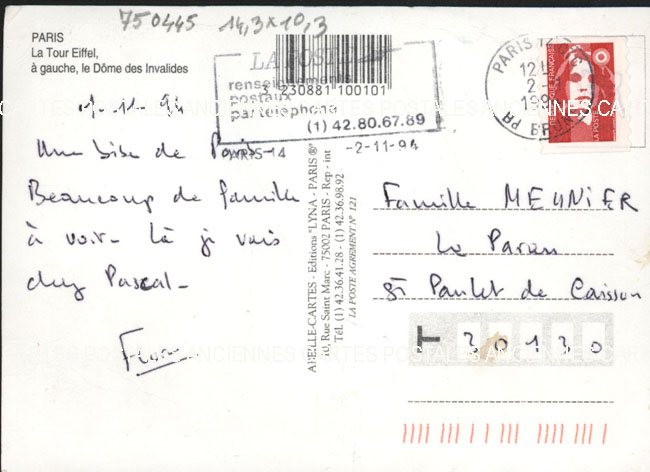 750445 14,3x10,3
PARIS
La Tour Eiffel,
à gauche, le Dôme des Invalides
LA POSTE
renseignements
postaux
par téléphone
(1) 42.80.67.89
3 230881 100101
PARIS 14
-2-11-94
PARIS
12
2-
199
PR BRUNE
REPUBLIQUE FRANÇAISE
LA POSTE
-11-94
Une bise de Paris-
Beaucoup de famille
à voir- Là je vais
chez Pascal-
ABEILLE-CARTES - Editions "LYNA - PARIS"®
10, Rue Saint Marc - 75002 PARIS - Rep - int
Tél. (1) 42.36.41.28 - (1) 42.36.98.92
LA POSTE AGREMENT N° 121
Famille MEUNIER
Le
St Paulet de Caisson
T 30130
CARTES POSTALES ANCIENNES